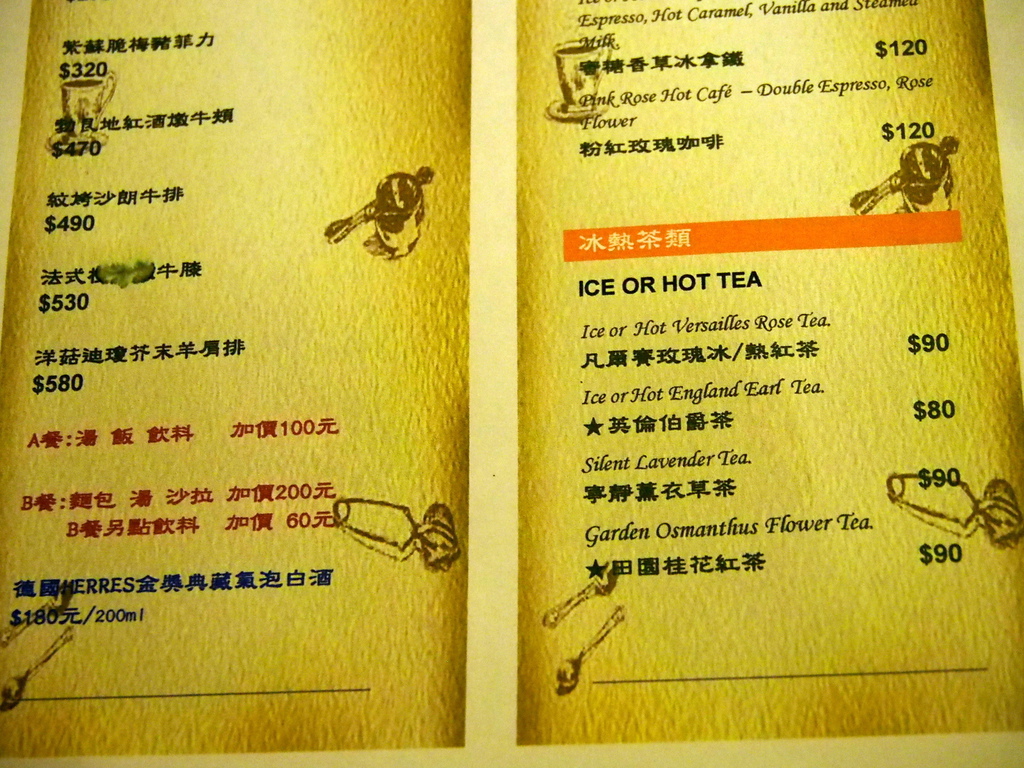 紫蘇脆梅豬菲力
$320
勃艮地紅酒燉牛頰
$470
紋烤沙朗牛排
$490
法式 牛膝
$530
洋菇迪瓊芥末羊肩排
$580
A餐:湯 飯 飲料 加價100元
B餐:麵包 湯 沙拉 加價200元
B餐另點飲料 加價 60元
德國HERRES金獎典藏氣泡白酒
$180元/200ml
Espresso, Hot Caramel, Vanilla and Steamed
Milk.
蜜糖香草冰拿鐵 $120
Pink Rose Hot Café – Double Espresso, Rose
Flower
粉紅玫瑰咖啡 $120
冰熱茶類
ICE OR HOT TEA
Ice or Hot Versailles Rose Tea.
凡爾賽玫瑰冰/熱紅茶 $90
Ice or Hot England Earl Tea.
★英倫伯爵茶 $80
Silent Lavender Tea.
寧靜薰衣草茶 $90
Garden Osmanthus Flower Tea.
★田園桂花紅茶 $90